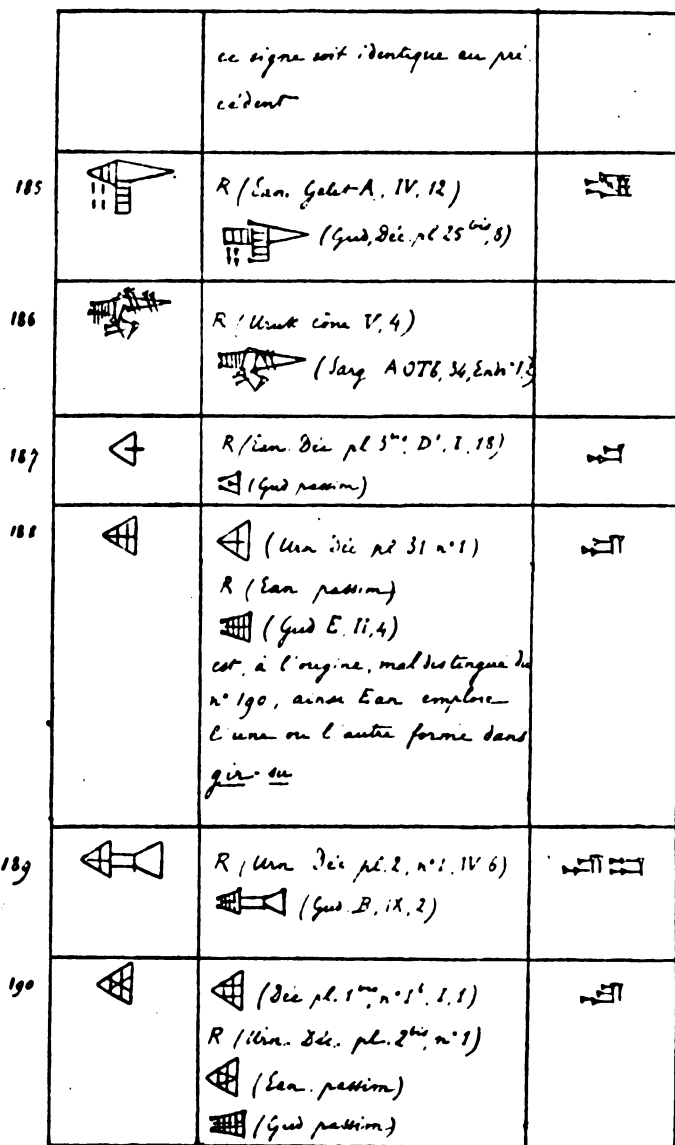 ce signe soit identique au pré
cédent
185
R (Ean. Galet A, IV, 12)
(Gud, Déc. pl 25 bis, 8)
186
R (Uruk cône V, 4)
(Sarg AOTb, 34,
187
R (Ean. Déc pl 3 D', I, 18)
(Gud passim)
188
(Urn Déc pl 31 n° 1)
R (Ean passim)
(Gud E, II, 4)
est, à l'origine, mal distingué du
n° 190, ainsi Ean emploie
l'une ou l'autre forme dans
gir-su
189
R (Urn Déc pl. 2, n° 1, IV 6)
(Gud. B, IX, 2)
190
(Déc pl. 1 n° 1 I, 1)
R (Urn. Déc. pl. 2 bis, n° 1)
(Ean. passim)
(Gud passim)